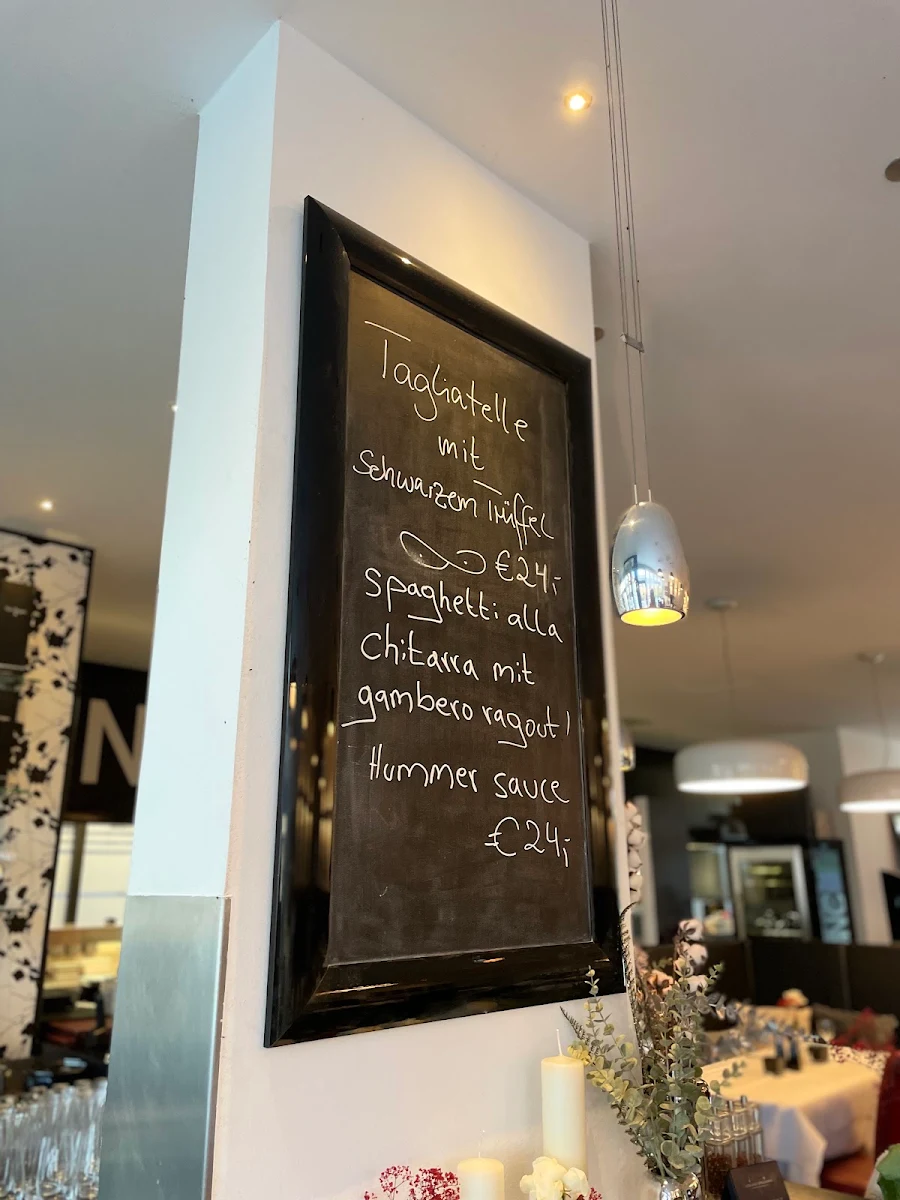 Tagliatelle
mit
Schwarzem Trüffel
€24,-
Spaghetti alla
Chitarra mit
gambero ragout /
Hummer sauce
€24,-
N